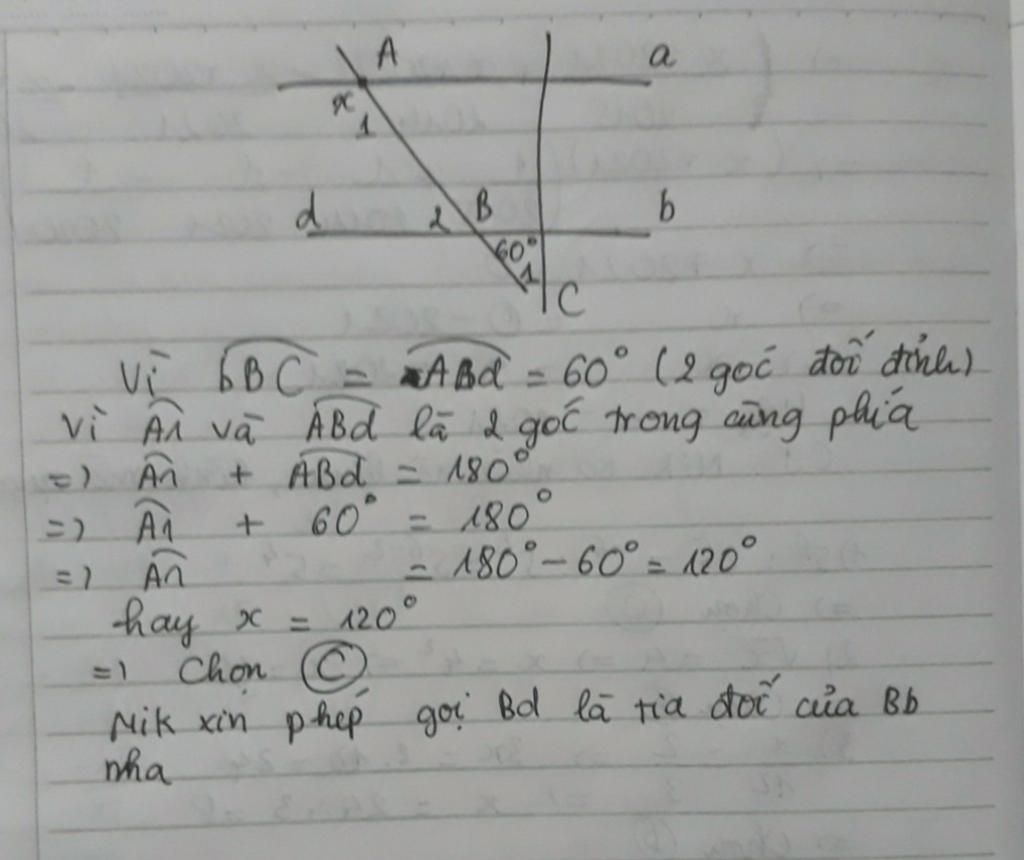 A
a
x
1
d
2
B
b
60°
1
C
Vì bBC = ABd = 60° (2 góc đối đỉnh)
Vì A1 và ABd là 2 góc trong cùng phía
=) A1 + ABd = 180°
=) A1 + 60° = 180°
=) A1 = 180° - 60° = 120°
hay x = 120°
=) Chọn C
Mik xin phép gọi Bd là tia đối của Bb
nha